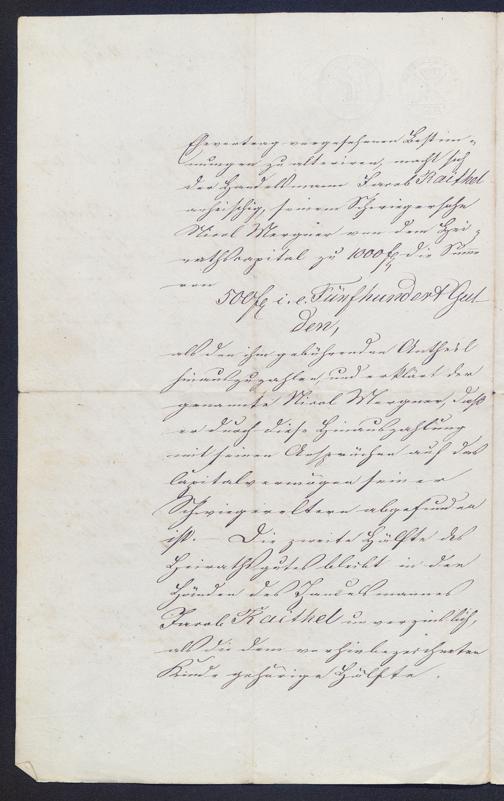 Ehevertrag vorgesehenen Bestim=
mungen zu alteriren, macht sich
der Handelsmann Jacob Raithel
anheischig, seinem Schwiegersohn
Nicol Mergner von dem Hei=
rathskapital zu 1000 f die Summe
von
500 f i. e. Fünfhundert Gul-
den,
als den ihm gebührenden Antheil
hinauszuzahlen, und erklärt der
genannte Nicol Mergner, daß
er durch diese Hinauszahlung
mit seinen Ansprüchen auf das
Capitalvermögen seiner
Schwiegereltern abgefunden
ist. — Die zweite Hälfte des
Heirathsgutes bleibt in den
Händen des Handelsmannes
Jacob Raithel unverzinslich,
als die dem vorhinbezeichneten
Kinde gehörige Hälfte.